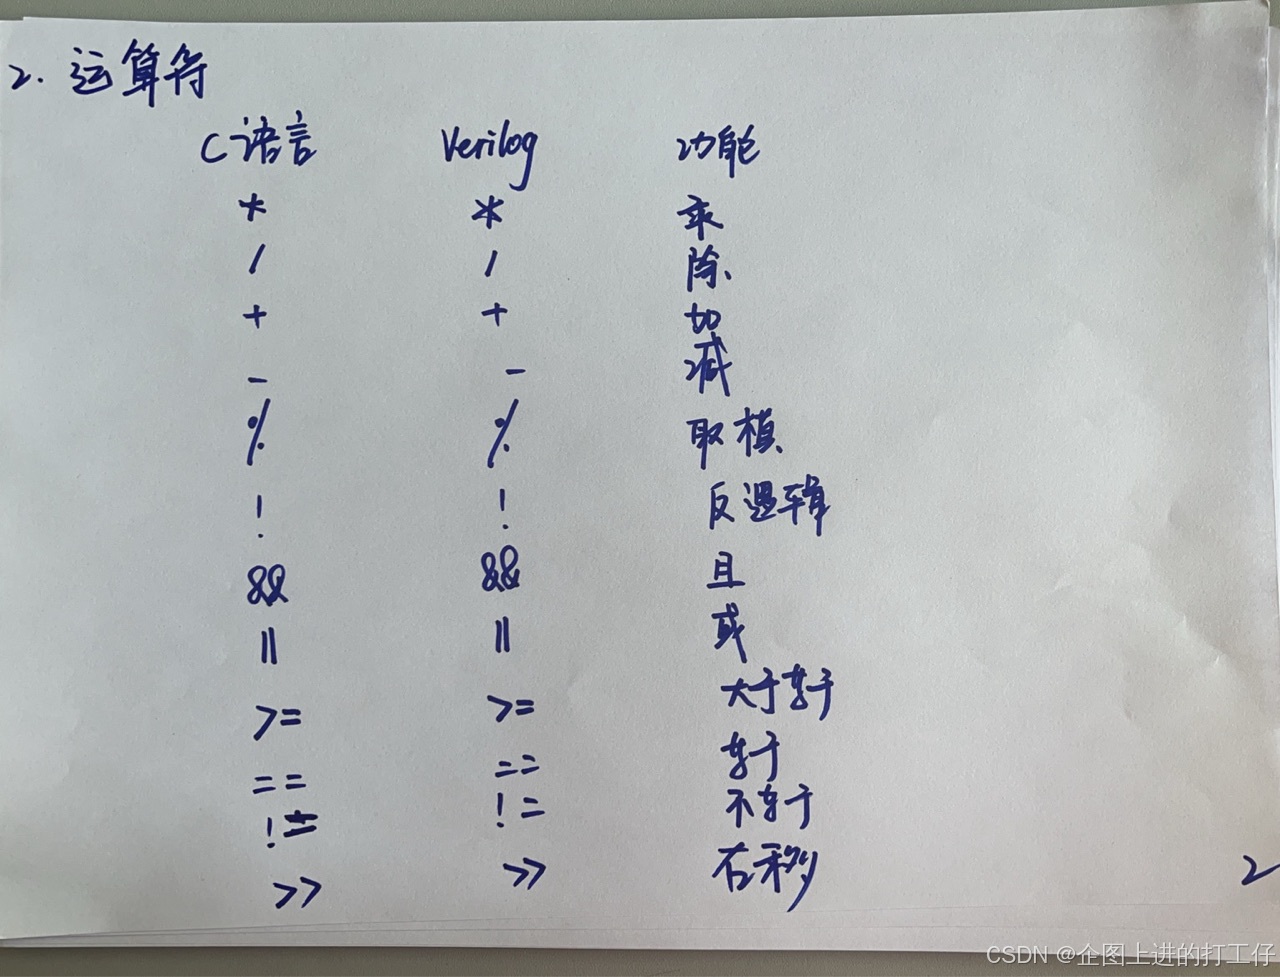 2. 运算符
C语言 Verilog 功能
* * 乘
/ / 除
+ + 加
- - 减
% % 取模
! ! 反逻辑
&& && 且
|| || 或
>= >= 大于等于
== == 等于
!= != 不等于
>> >> 右移
2
CSDN @企图上进的打工仔